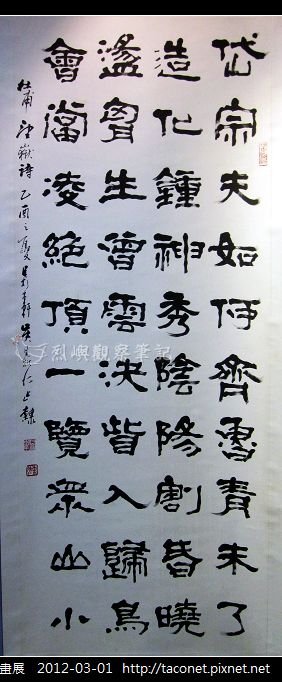 岱宗夫如何齊魯青未了
造化鍾神秀陰陽割昏曉
盪胷生曾雲決眥入歸鳥
會當凌絕頂一覽眾山小
杜甫望嶽詩乙酉之夏
烈嶼觀察筆記
畫展 2012-03-01 http://taconet.pixnet.net